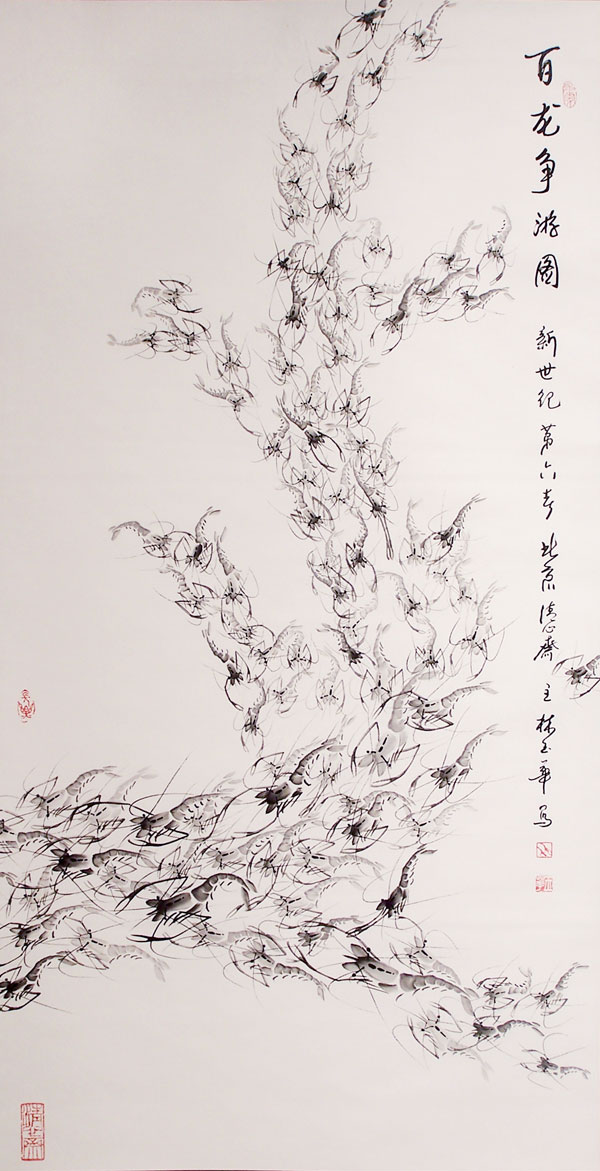 百龙争游图 新世纪第六春 北京清心斋主林玉华写